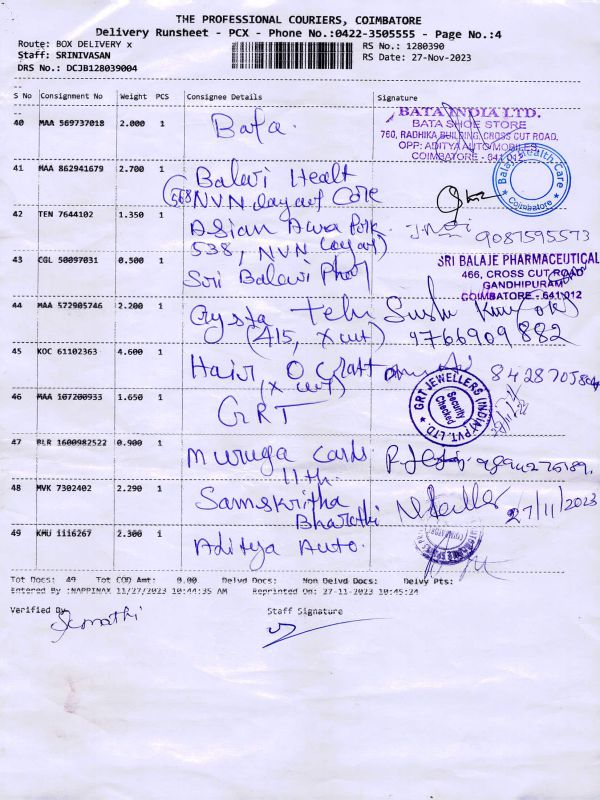 THE PROFESSIONAL COURIERS, COIMBATORE
Delivery Runsheet - PCX - Phone No.:0422-3505555 - Page No.:4
Route: BOX DELIVERY x
RS No.: 1280390
Staff: SRINIVASAN
RS Date: 27-Nov-2023
DRS No.: DCJB128039004
S No Consignment No Weight PCS Consignee Details Signature
40 MAA 569737018 2.000 1 Bata.
BATA INDIA LTD.
BATA SHOE STORE
760, RADHIKA BUILDING, CROSS CUT ROAD,
OPP: ADITYA AUTO MOBILES,
COIMBATORE - 641 012
41 MAA 862941679 2.700 1 Balavi Healt
568 NVN layout Core
Balaji Health Care
Coimbatore
42 TEN 7644102 1.350 1 Asian Awa
538, NVN layout)
9087595573
43 CGL 50097031 0.500 1 Sri Balavi
SRI BALAJE PHARMACEUTICAL
466, CROSS CUT ROAD
GANDHIPURAM
COIMBATORE - 641 012
44 MAA 572905746 2.200 1 Crysta Tele
(415, X cut)
9766909882
45 KOC 61102363 4.600 1 Hair O Craft
(X cut)
46 MAA 107200933 1.650 1 GRT
GRT JEWELLERS (INDIA) PVT. LTD.
Security
Checked
47 BLR 1600982522 0.900 1 Muruga Cards
11th.
48 MVK 7302402 2.290 1 Samskritha
Bharathi
27/11/2023
49 KMU 1116267 2.300 1 Aditya Auto.
Tot Docs: 49 Tot COD Amt: 0.00 Delvd Docs: Non Delvd Docs: Delvy Pts:
Entered By :NAPPINAX 11/27/2023 10:44:35 AM Reprinted On: 27-11-2023 10:45:24
Verified By
Staff Signature